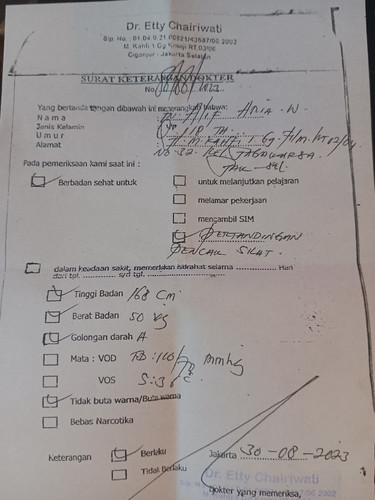 Dr. Etty Chairiwati
Sip. No. : 01.04.9.21.00821/43587/06 2002
M. Kahfi 1 Gg RT.03/06
Ciganjur - Jakarta Selatan
SURAT KETERANGAN DOKTER
No. /2023
Yang bertanda tangan dibawah ini menerangkan bahwa:
Nama : W.
Jenis Kelamin :
Umur : TH.
Alamat : Jl. M. KAHFI I Gg. RT 02/04
No. 32 KEL. JAGAKARSA
JAK - SEL
Pada pemeriksaan kami saat ini :
Berbadan sehat untuk
untuk melanjutkan pelajaran
melamar pekerjaan
mengambil SIM
PERTANDINGAN
PENCAK SILAT.
dalam keadaan sakit, memerlukan istirahat selama Hari
dari tgl. s/d tgl.
Tinggi Badan 168 Cm
Berat Badan 50 kg
Golongan darah A
Mata : VOD mmHg
VOS
Tidak buta warna/Buta warna
Bebas Narcotika
Keterangan
Berlaku
Tidak Berlaku
Jakarta 30-08-2023
Dr. Etty Chairiwati
Dokter yang memeriksa,